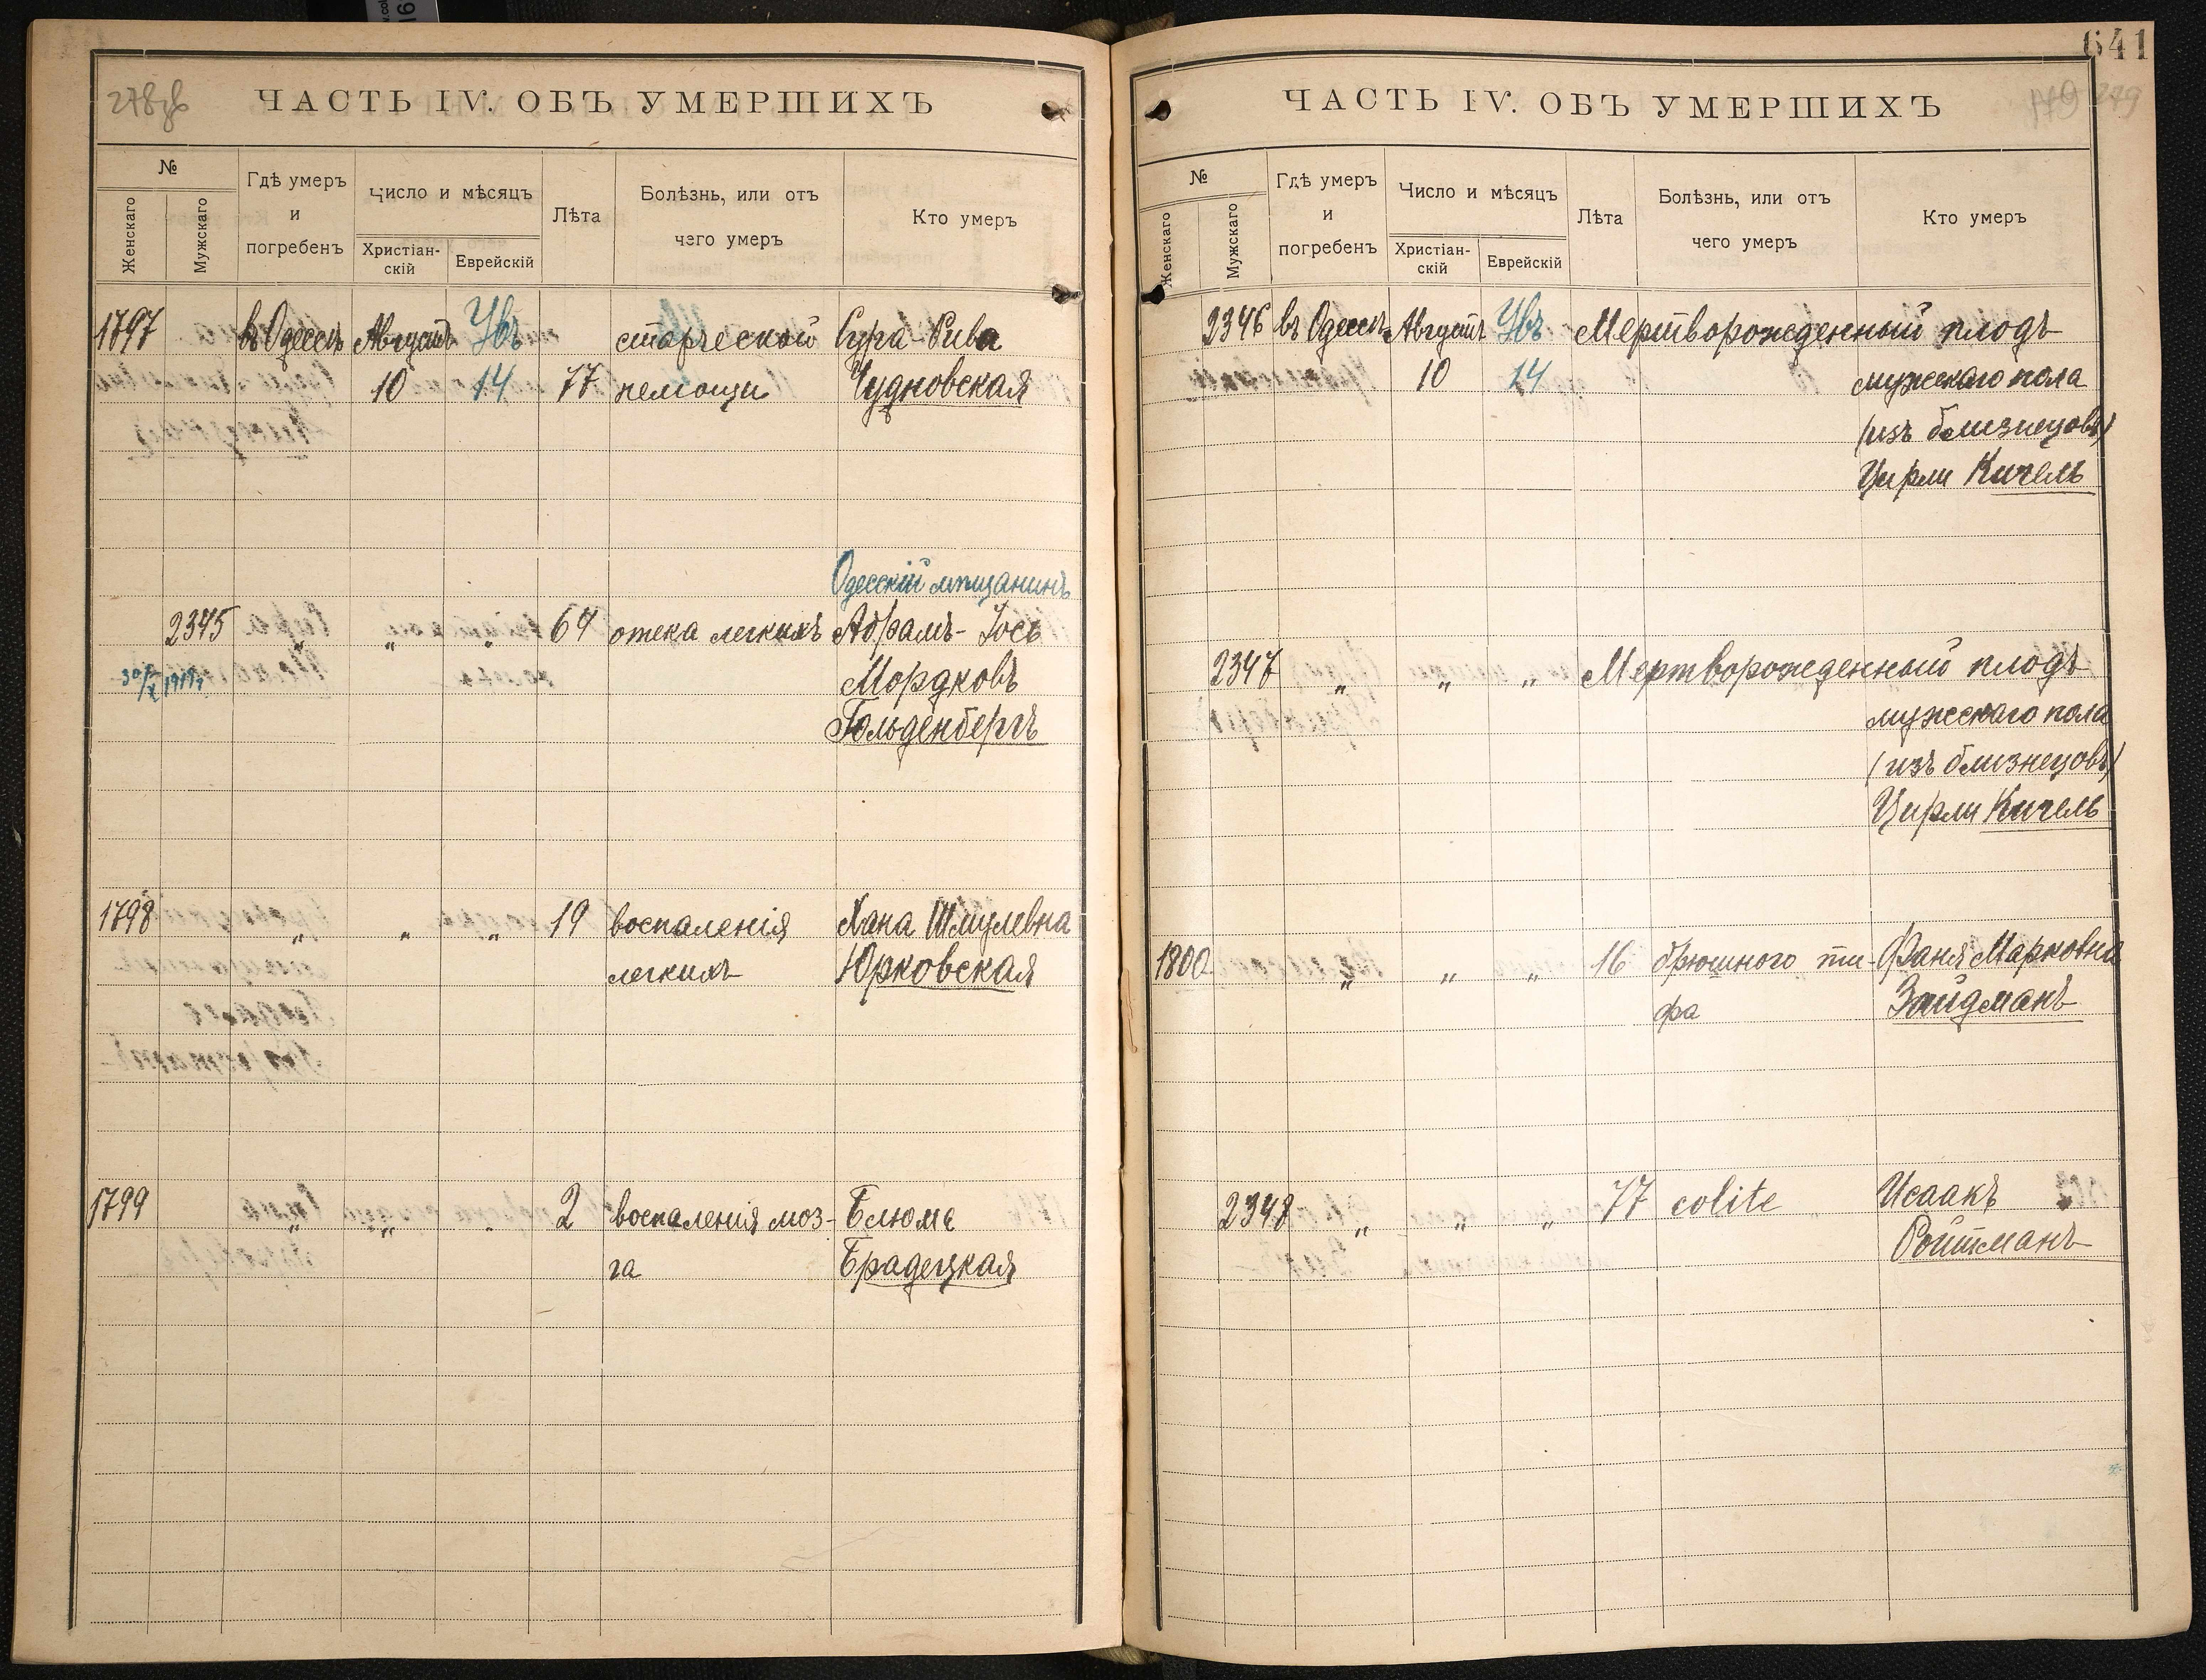 278об
ЧАСТЬ IV. ОБЪ УМЕРШИХЪ
№
Женскаго
Мужскаго
Гдѣ умеръ
и
погребенъ
Число и мѣсяцъ
Христіан-
скій
Еврейскій
Лѣта
Болѣзнь, или отъ
чего умеръ
Кто умеръ
1797 въ Одессѣ Августъ Увъ старческой Сура-Рива
10 14 77 немощи Чудновская
Одесскій мѣщанинъ
2345 " " " 64 отека легкихъ Абрамъ-Іось
30/X 1919 Мордковъ
Гольденбергъ
1798 " " " 19 воспаленія Хана Шмулевна
легкихъ Юрковская
1799 " " " 2 воспаленія моз- Блюма
га Брадецкая
641
279
ЧАСТЬ IV. ОБЪ УМЕРШИХЪ
№
Женскаго
Мужскаго
Гдѣ умеръ
и
погребенъ
Число и мѣсяцъ
Христіан-
скій
Еврейскій
Лѣта
Болѣзнь, или отъ
чего умеръ
Кто умеръ
2346 въ Одессѣ Августъ Увъ Мертворожденный плодъ
10 14 мужскаго пола
(изъ близнецовъ)
Цирли Кичель
2347 " " " Мертворожденный плодъ
мужескаго пола
(изъ близнецовъ)
Цирли Кичель
1800 " " " 16 брюшного ти- Фаня Марковна
фа Зайдманъ
2348 " " " 77 colite Исаакъ
Ройтманъ